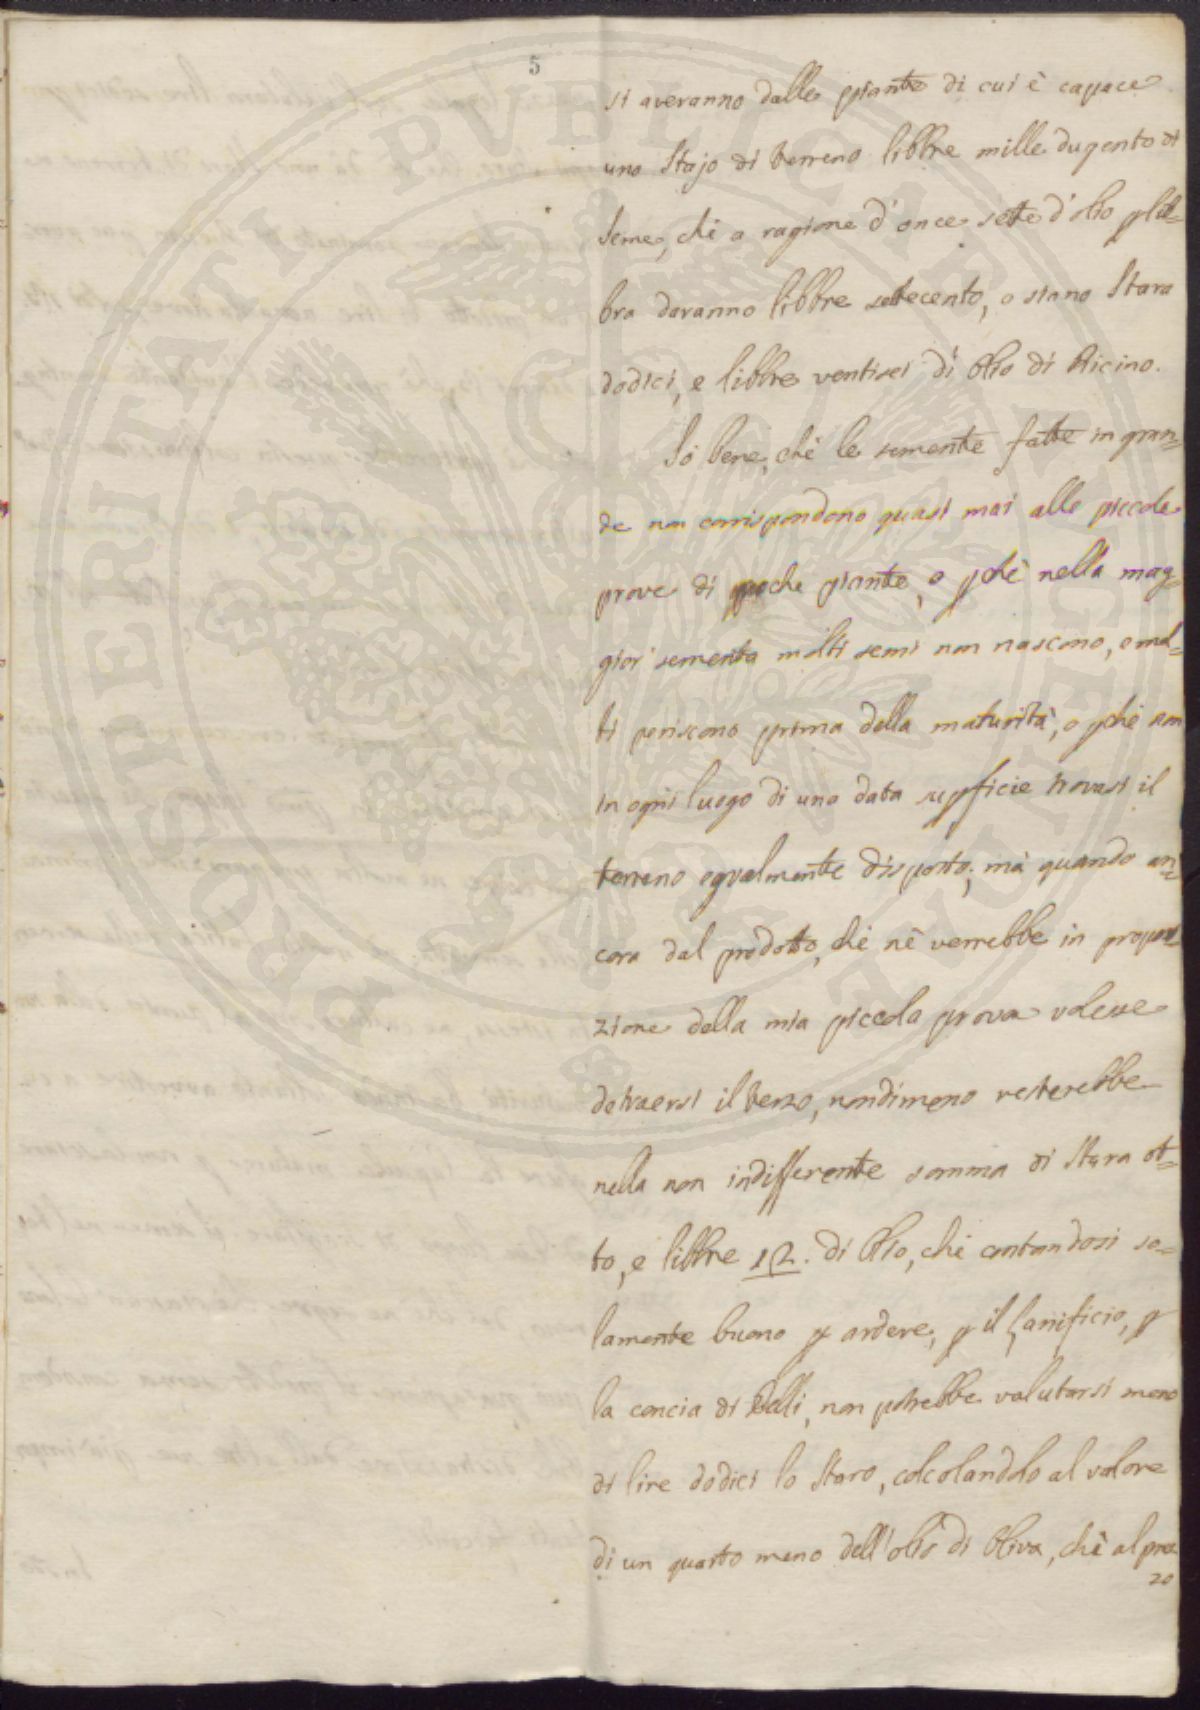 5
si averanno dalle piante di cui è capace
uno Stajo di terreno libbre mille dugento di
seme, chè a ragione d'once sette d'olio p lib=
bra daranno libbre settecento, o siano Stara
dodici, e libbre ventisei di Olio di Ricino.
Só bene, chè le semente fatte in gran=
de non corrispondono quasi mai alle piccole
prove di poche piante, o pchè nella mag=
gior sementa molti semi non nascono, o mol=
ti periscono prima della maturità, o pchè non
in ogni luogo di una data supficie trovasi il
terreno egualmente disposto; mà quando an=
cora dal prodotto, chè nè verrebbe in propor=
zione della mia piccola prova volesse
detraersi il terzo, nondimeno resterebbe
nella non indifferente somma di Stara ot=
to, e libbre 12. di Olio, chè contandosi so=
lamente buono p ardere, p il lanificio, p
la concia di Pelli, non potrebbe valutarsi meno
di lire dodici lo Staro, colcolandolo al valore
di un quarto meno dell'olio di Oliva, chè al prez
zo
PROSPERITATI PVBLICAE AVGENDAE